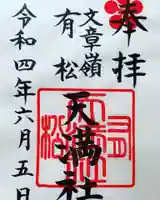 奉拝
文章嶺
有松
天満社
令和四年六月五日